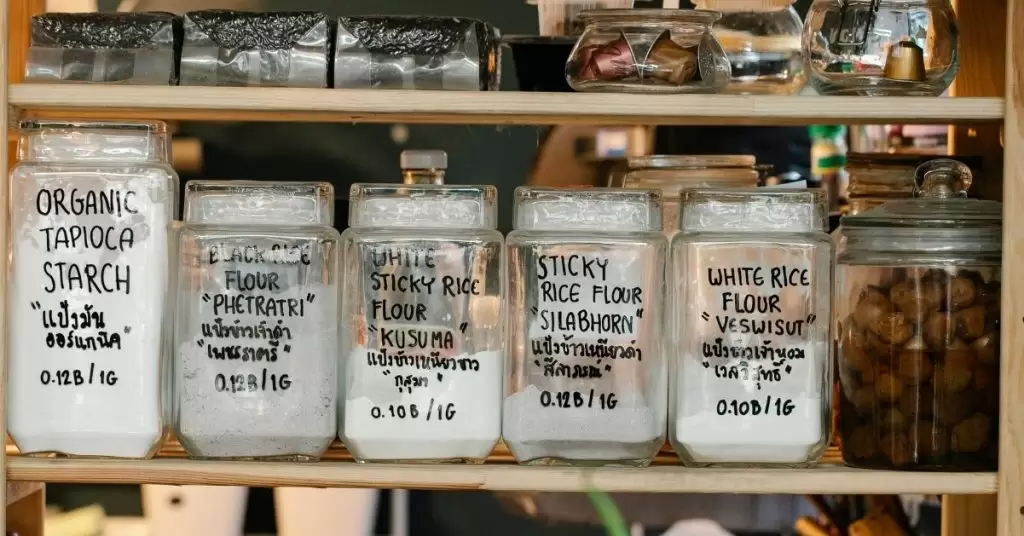 ORGANIC
TAPIOCA
STARCH
"แป้งมัน
ออร์แกนิค"
0.12B/1G
BLACK RICE
FLOUR
"PHETRATRI"
แป้งข้าวเจ้าดำ
"เพชรราตรี"
0.12B/1G
WHITE
STICKY RICE
FLOUR
"KUSUMA"
แป้งข้าวเหนียวขาว
"กุสุมา"
0.10B/1G
STICKY
RICE FLOUR
"SILABHORN"
แป้งข้าวเหนียวดำ
"สีลาภรณ์"
0.12B/1G
WHITE RICE
FLOUR
"VESWISUT"
แป้งข้าวเจ้าหอม
"เวสวิสุทธิ์"
0.10B/1G